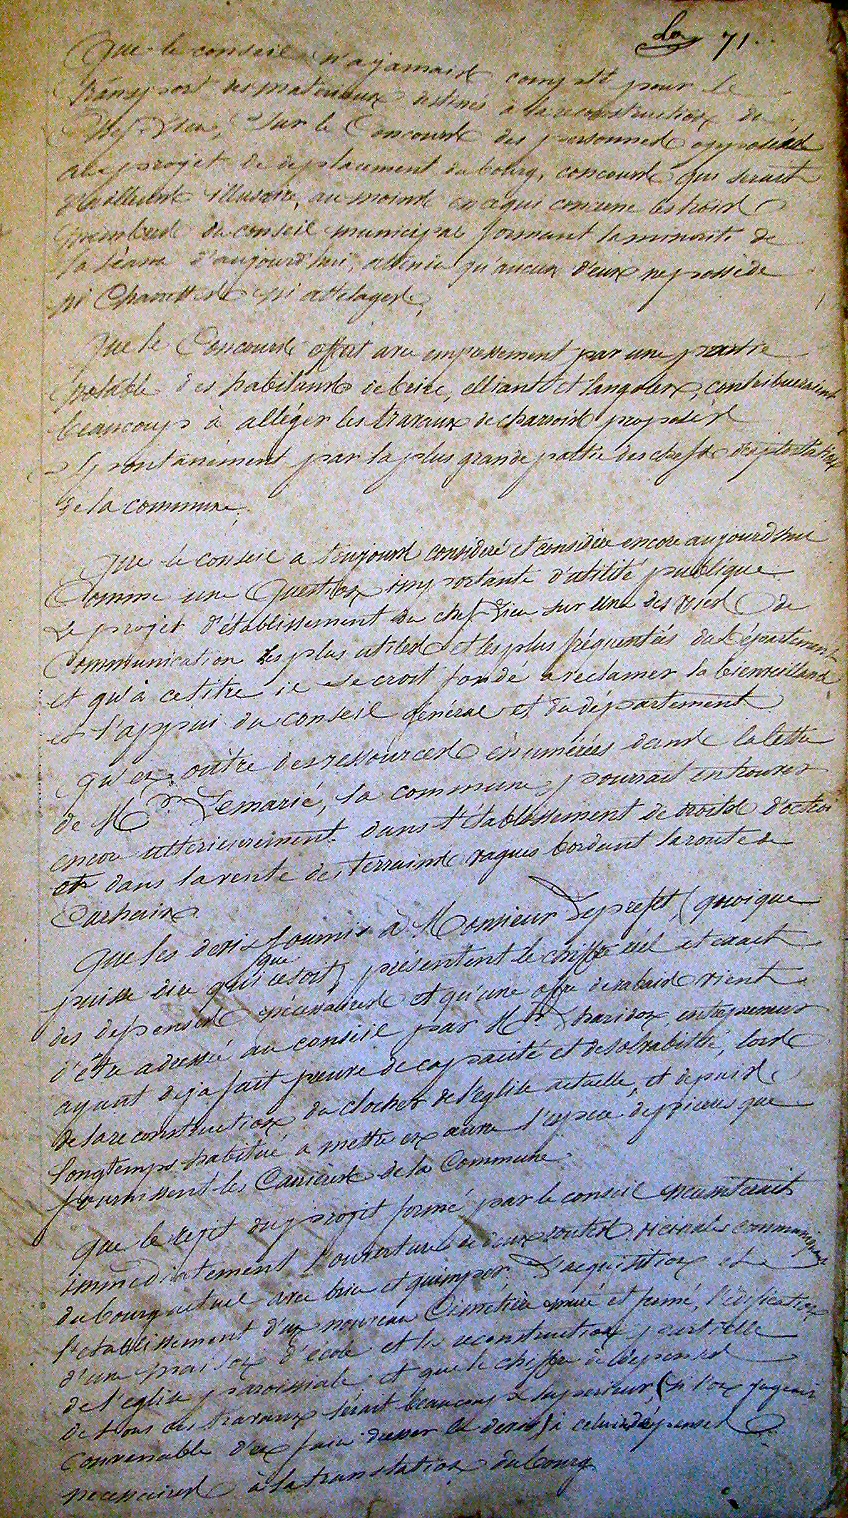 71
Que le conseil n'a jamais compté pour le
transport des matériaux destinés à la reconstruction de
sur le Concours des personnes opposées
au projet de déplacement du bourg, concours qui serait
d'ailleurs illusoire, au moins en ce qui concerne les trois
membres du conseil municipal formant la minorité de
la séance d'aujourd'hui, attendu qu'aucun d'eux ne possède
ni Charrettes ni attelages,
Que le Concours offert avec empressement par une partie
notable des habitants de briec, elliant et langolen, contribueraient
beaucoup à alléger les travaux de charrois proposés
spontanément par la plus grande partie des chefs d'exploitation
de la commune,
Que le conseil a toujours considéré et considère encore aujourd'hui
Comme une question importante d'utilité publique
Le projet d'établissement du chef lieu sur une des voies de
Communication les plus utiles et les plus fréquentées du département
et qu'à ce titre il se croit fondé à réclamer la bienveillance
et l'appui du conseil général et du département
qu'en outre des ressources énumérées dans la lettre
de Mr. Lemarié, la commune pourrait en trouver
encore ultérieurement dans l'établissement de droits d'octroi
et dans la vente des terrains vagues bordant la route de
Carhaix.
Que les devis fournis à Monsieur Le préfet (quoique
puisse dire qui que ce soit) présentent le chiffre réel et exact
des dépenses nécessaires et qu'une offre de rabais vient
d'être adressée au conseil par Mr. entrepreneur
ayant déjà fait preuve de capacité et de solvabilité, lors
de la reconstruction du clocher de l'église actuelle, et depuis
longtemps habitué à mettre en œuvre l'espèce de pierres que
fournissent les Carrières de la Commune.
Que le rejet du projet formé par le conseil nécessiterait
immédiatement l'ouverture de deux routes vicinales communiquant
du bourg actuel avec briec et quimper, L'acquisition et
l'établissement d'un nouveau Cimetière muré et fermé, l'édification
d'une maison d'école et la reconstruction partielle
de l'église paroissiale et que le chiffre de dépenses
de tous ces travaux serait beaucoup supérieur, (si l'on jugeait
convenable d'en faire dresser les devis) à celui des dépenses
nécessaires à la translation du bourg